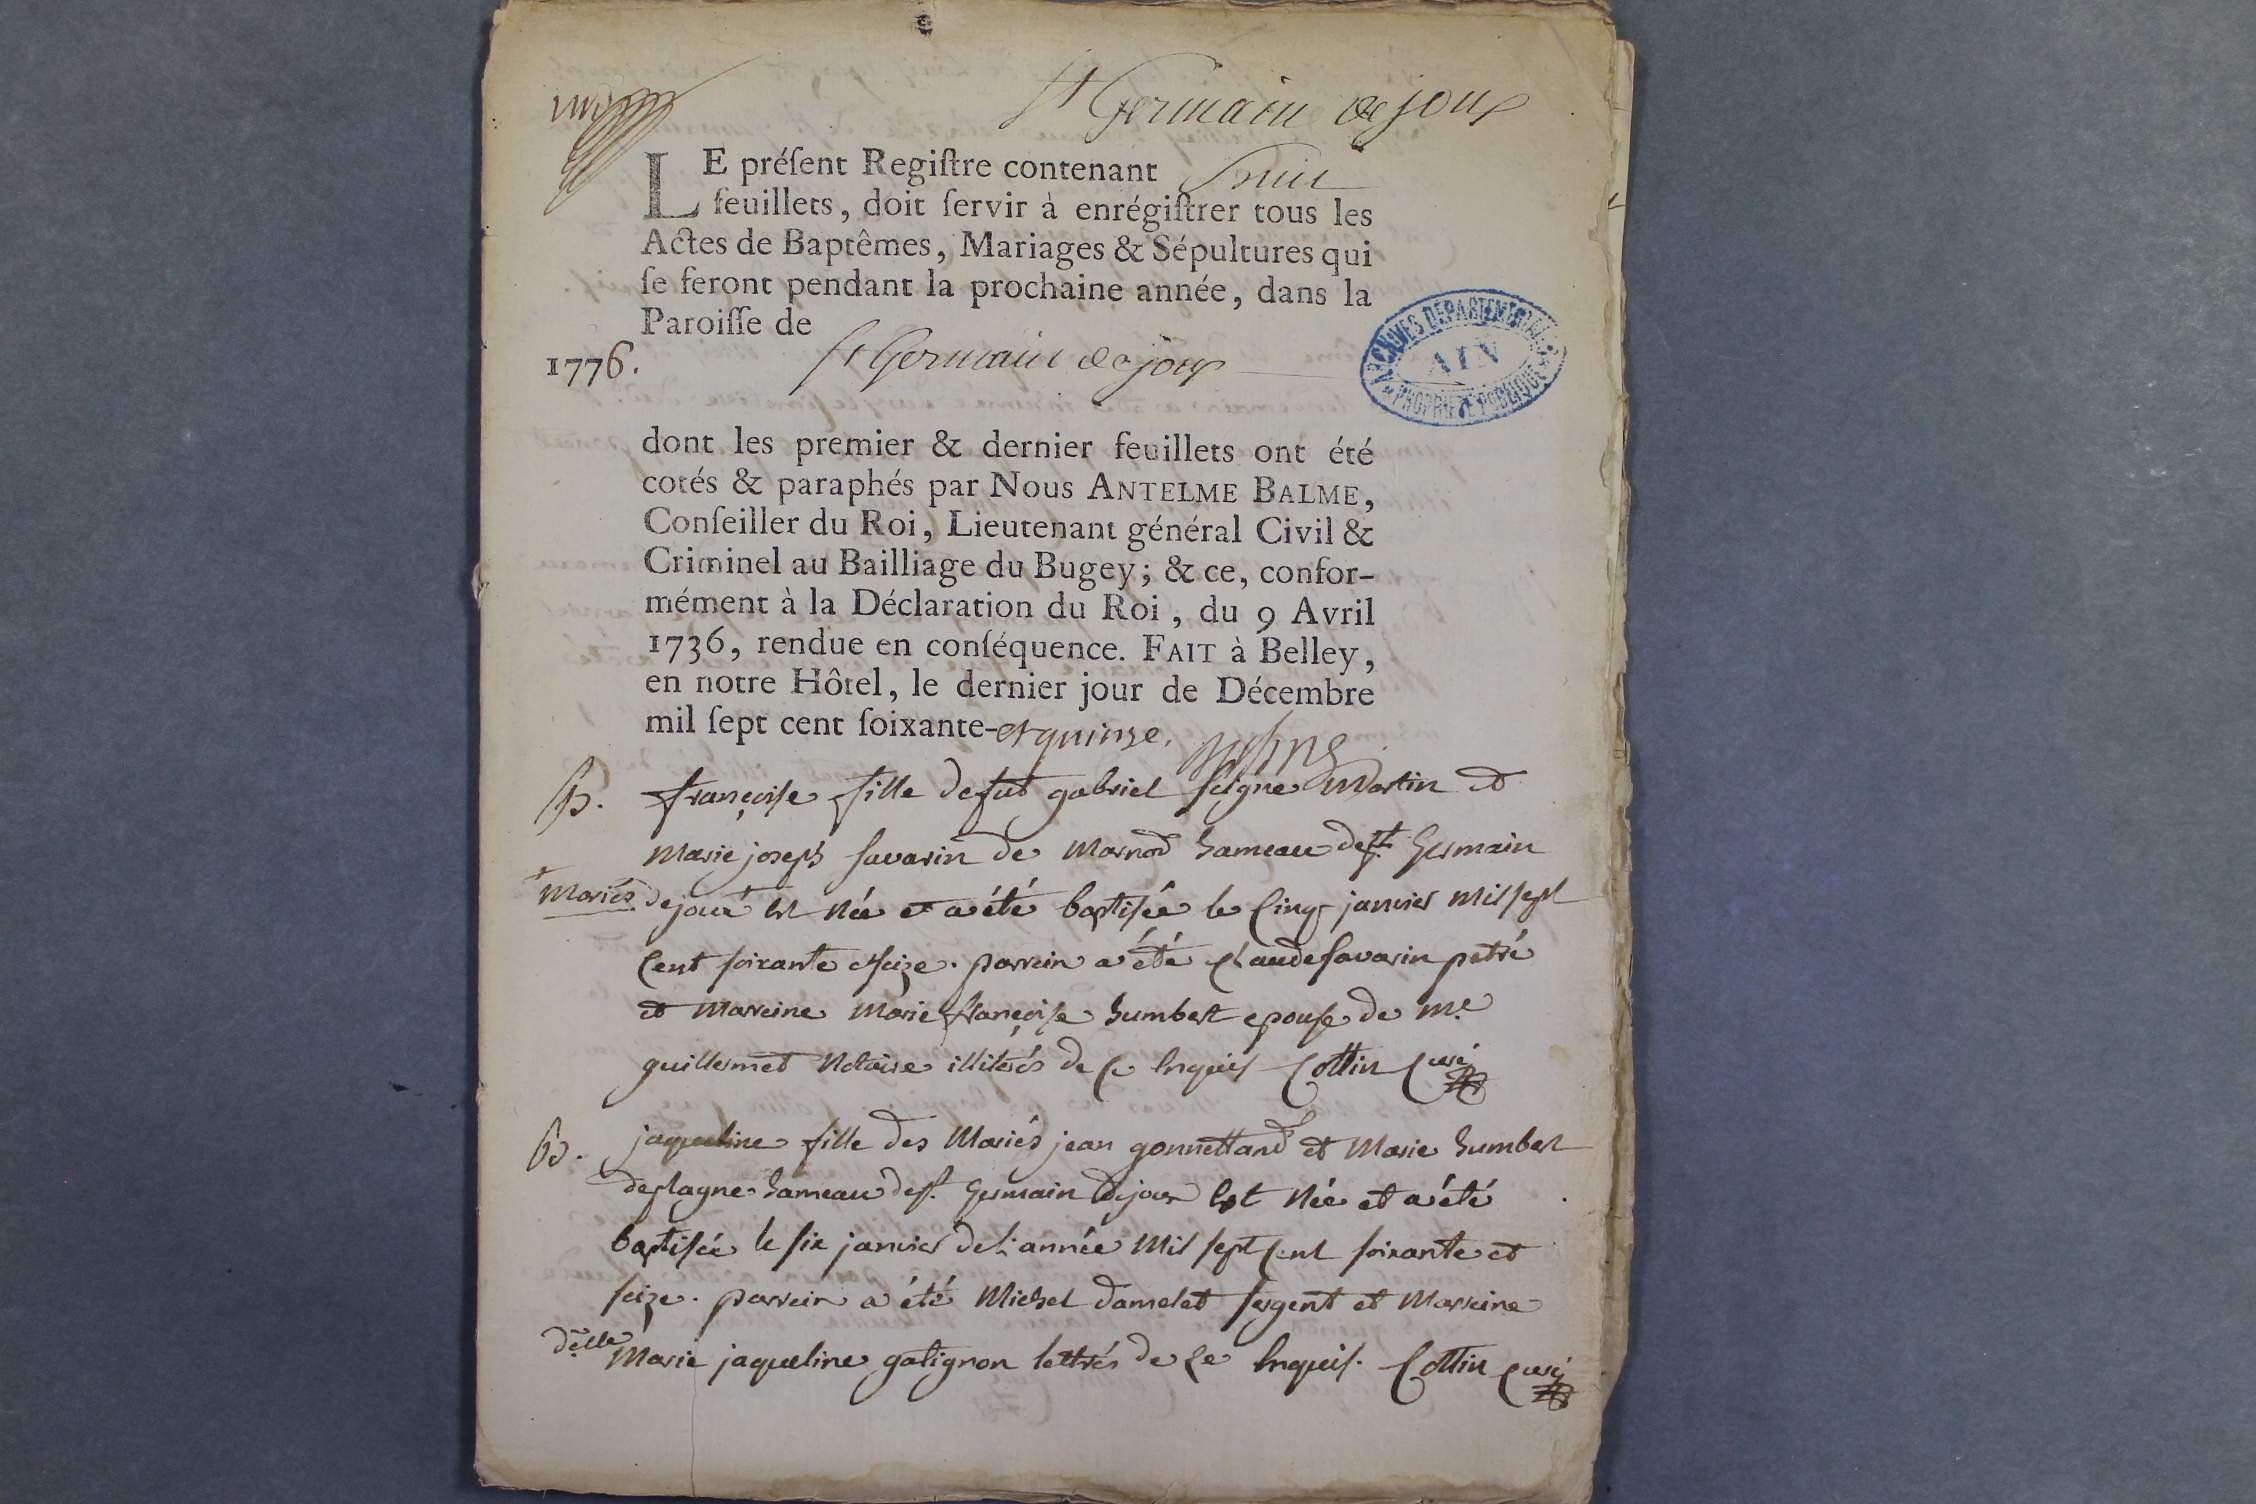 St Germain de joux
LE préſent Regiſtre contenant huit
feuillets, doit ſervir à enrégiſtrer tous les
Actes de Baptêmes, Mariages & Sépultures qui
ſe feront pendant la prochaine année, dans la
Paroiſſe de
1776. St Germain de joux
ARCHIVES DÉPARTEMENTALES
AIN
PROPRIÉTÉ PUBLIQUE
dont les premier & dernier feuillets ont été
cotés & paraphés par Nous ANTELME BALME,
Conſeiller du Roi, Lieutenant général Civil &
Criminel au Bailliage du Bugey; & ce, confor-
mément à la Déclaration du Roi, du 9 Avril
1736, rendue en conſéquence. FAIT à Belley,
en notre Hôtel, le dernier jour de Décembre
mil ſept cent ſoixante-et quinze.
B. françoise fille de fut gabriel Martin et
Marie joseph savarin de Marnod hameau de st. Germain
Mariés de joux est Née et a été baptisée le Cinq janvier Mil sept
Cent soixante et seize. parrein a été Claude savarin
et Marreine Marie françoise humbert epouse de me
guillermet Notaire illiterés de ce enquis Cottin Curé
B. jaqueline fille des Mariés jean gonnettand et Marie humbert
de plagne hameau de st. Germain de joux est Née et a été
baptisée le six janvier de l'année Mil sept Cent soixante et
seize. parrein a été Michel damelet sergent et Marreine
delle Marie jaqueline galignon lettrés de Ce enquis. Cottin Curé